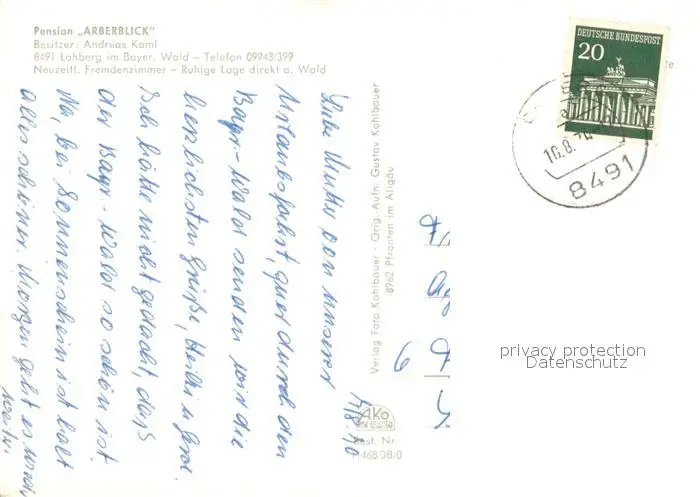 Pension „ARBERBLICK"
Besitzer: Andreas Kaml
8491 Lohberg im Bayer. Wald — Telefon 09943/399
Neuzeitl. Fremdenzimmer — Ruhige Lage direkt a. Wald
Liebe Mutter von unserer
Urlaubsfahrt, quer durch den
Bayr.-Wald senden wir die
herzlichsten Grüße,
Ich hätte nicht gedacht, daß
der Bayr.-Wald so schön ist.
Na, bei Sonnenschein ist halt
alles schöner. Morgen geht es wieder
weiter.
Verlag Foto Kohlbauer · Orig. Aufn. Gustav Kohlbauer
8962 Pfronten im Allgäu
AKO
Best. Nr.
DEUTSCHE BUNDESPOST
20
10.8.70
8491
6
privacy protection
Datenschutz